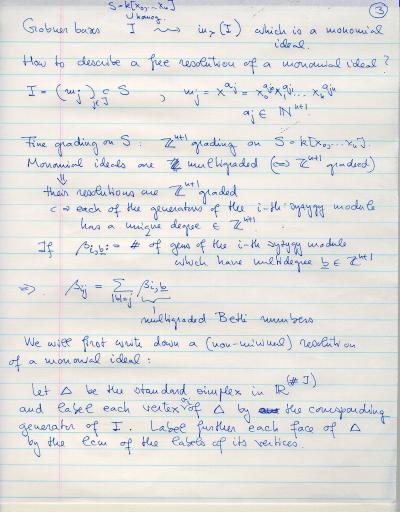 S=k[x0,..xn]
U homog.
③
Gröbner bases I ⇝ in>(I) which is a monomial
ideal.
How to describe a free resolution of a monomial ideal?
I = (mj)j∈J ⊆ S , mj = x^aj = x0^aj0 x1^aj1 ... xn^ajn
aj ∈ ℕ^n+1
Fine grading on S : ℤ^n+1 grading on S=k[x0,..xn].
Monomial ideals are multigraded (⇔ ℤ^n+1 graded)
⇓
their resolutions are ℤ^n+1 graded
each of the generators of the i-th syzygy module
has a unique degree ∈ ℤ^n+1.
If βi,b := # of gens of the i-th syzygy module
which have multidegree b ∈ ℤ^n+1
⇒ βij = Σ|b|=j βi,b
multigraded Betti numbers
We will first write down a (non-minimal) resolution
of a monomial ideal:
Let Δ be the standard simplex in ℝ^(#J)
and label each vertex of Δ by the corresponding
generator of I. Label further each face of Δ
by the lcm of the labels of its vertices.